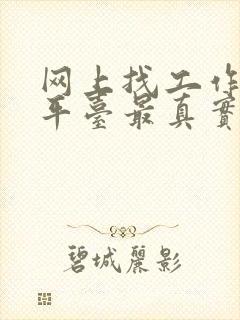 网上找工作
平臺最真實
碧城麗影